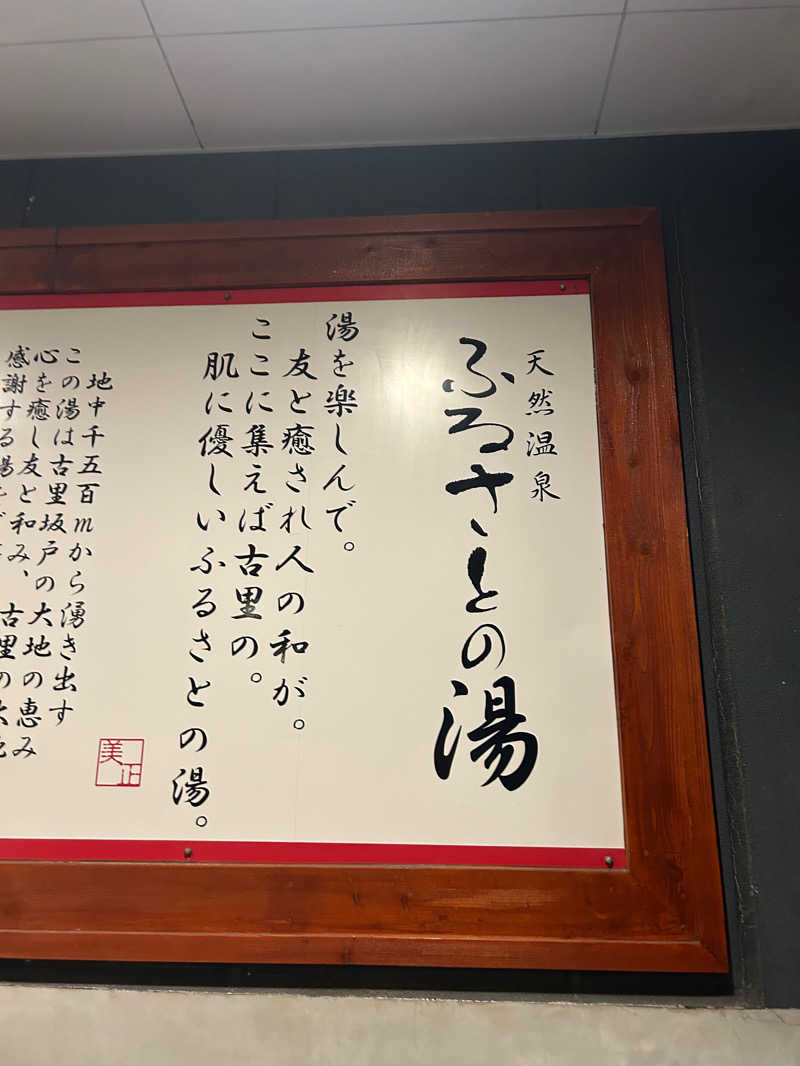 天然温泉
ふるさとの湯
湯を楽しんで。
友と癒され人の和が。
ここに集えば古里の。
肌に優しいふるさとの湯。
美正
地中千五百mから湧き出す
この湯は古里坂戸の大地の恵み
心を癒し友と和み、古里の
感謝する湯